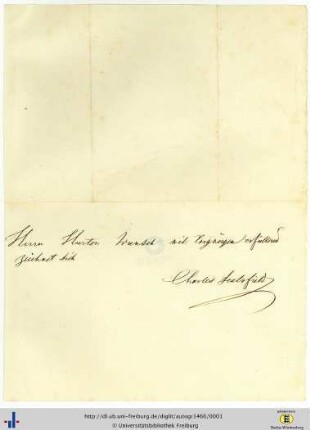 Herrn Hurton Wunsch mit Vergnügen erfüllend
zeichnet sich
Charles Sealsfield
http://dl.ub.uni-freiburg.de/diglit/autogr1466/0001
© Universitätsbibliothek Freiburg